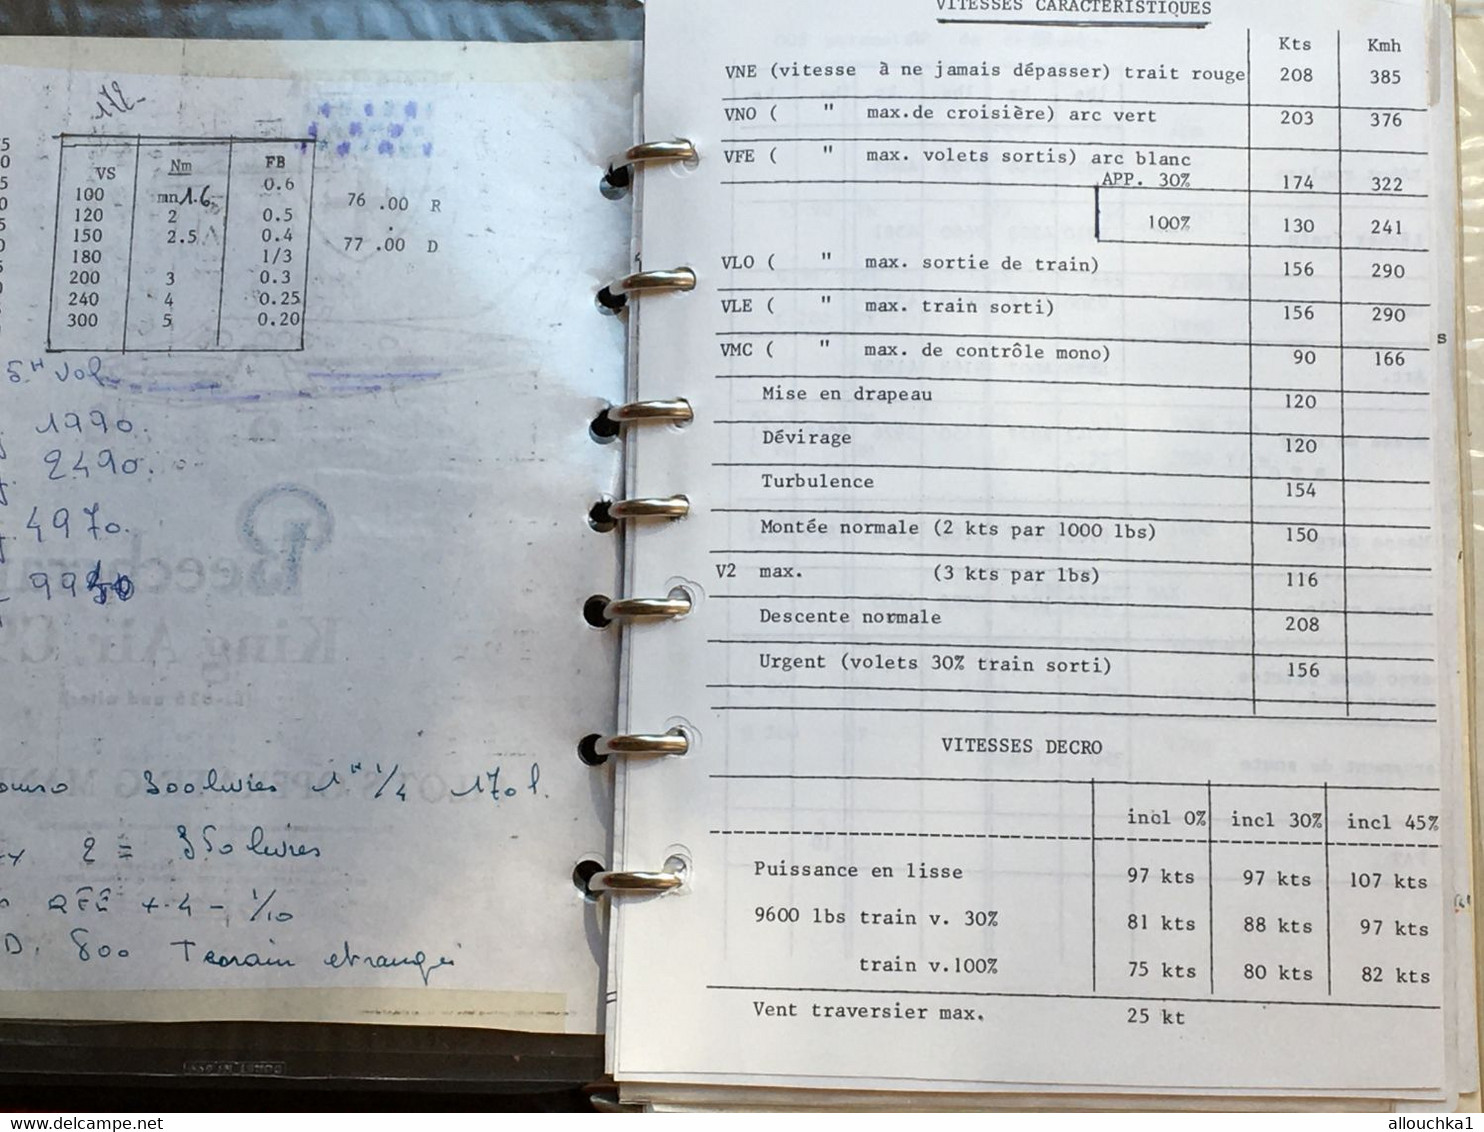 172-
VS Nm FB
100 mn 1.6 0.6
120 2 0.5
150 2.5 0.4
180 1/3
200 3 0.3
240 4 0.25
300 5 0.20
76 .00 R
77 .00 D
5.H vol
1990.
2490.
4970.
300 livres 1H 1/4 170 l.
2 = 350 livres
QFE + 4 - 1/10
D. 800 Terrain etranger
VITESSES CARACTERISTIQUES
Kts Kmh
VNE (vitesse à ne jamais dépasser) trait rouge 208 385
VNO ( " max.de croisière) arc vert 203 376
VFE ( " max. volets sortis) arc blanc
APP. 30% 174 322
100% 130 241
VLO ( " max. sortie de train) 156 290
VLE ( " max. train sorti) 156 290
VMC ( " max. de contrôle mono) 90 166
Mise en drapeau 120
Dévirage 120
Turbulence 154
Montée normale (2 kts par 1000 lbs) 150
V2 max. (3 kts par lbs) 116
Descente normale 208
Urgent (volets 30% train sorti) 156
VITESSES DECRO
incl 0% incl 30% incl 45%
Puissance en lisse 97 kts 97 kts 107 kts
9600 lbs train v. 30% 81 kts 88 kts 97 kts
train v.100% 75 kts 80 kts 82 kts
Vent traversier max. 25 kt
www.delcampe.net
allouchka1